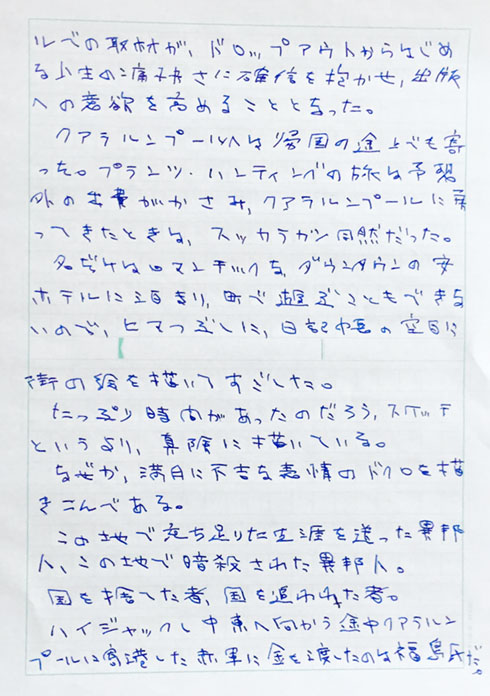 ルベの取材が、ドロップアウトからはじめ
る人生の痛快さに確信を抱かせ、出版
への意欲を高めることとなった。
クアラルンプールへは帰国の途上でも寄
った。プランツ・ハンティングの旅は予想
外の出費がかさみ、クアラルンプールに戻
ってきたときは、スッカラカン同然だった。
名だけはロマンチックな、ダウンタウンの安
ホテルに泊まり、町で遊ぶこともできな
いので、ヒマつぶしに、日記帳の空白に
街の絵を描いてすごした。
たっぷり時間があったのだろう、スケッチ
というより、真険に描いている。
なぜか、満月に不吉な表情のドクロを描
きこんである。
この地で充ち足りた生涯を送った異邦
人、この地で暗殺された異邦人。
国を捨てた者、国を追われた者。
ハイジャックし中東へ向かう途中クアラルン
プールに寄港した赤軍に金を渡したのは福島氏だ。